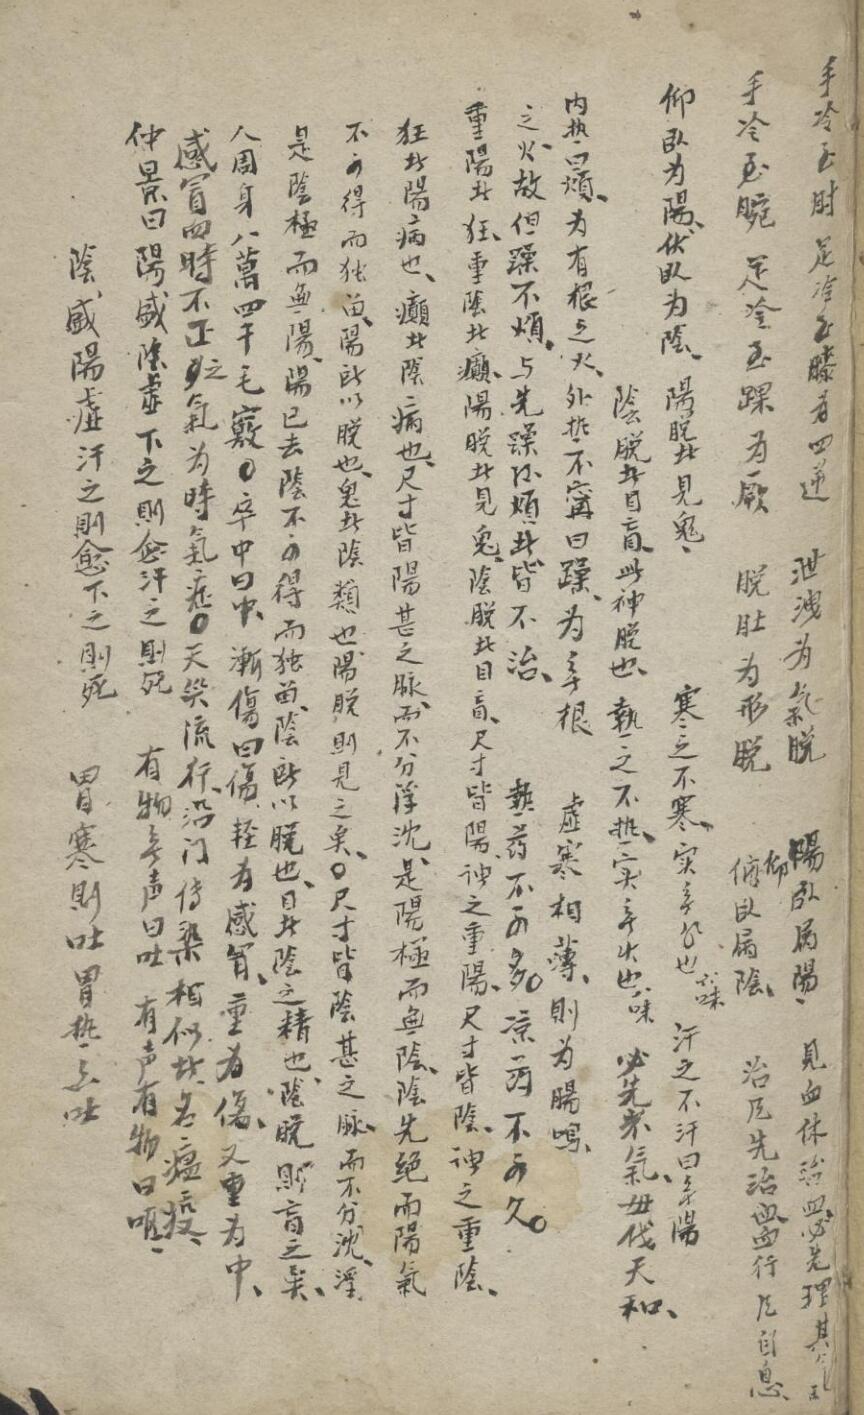 手冷至肘 足冷至膝为四逆 泄洩为氣脱 陽卧属陽、 見血休治血必先理其
手冷至腕 足冷至踝为厥 脱肚为形脱 俯仰卧属陰、 治风先治血血行风自息
仰卧为陽、伏卧为陰、陽脱者見鬼、 寒之不寒、实無水也六味 汗之不汗曰無陽
陰脱者目盲、此神脱也 熱之不热、实無火也八味 必先歲氣、毋伐天和、
内热曰煩、为有根之火、外热不寧曰躁、为無根 虚寒相薄、則为腸鳴、
之火、故但躁不煩、与先躁後煩者、皆不治、 熱药不可多。凉药不可久。
重陽者狂、重陰者癲、陽脱者見鬼、陰脱者目盲、尺寸皆陽、謂之重陽、尺寸皆陰、謂之重陰、
狂者陽病也、癲者陰病也、尺寸皆陽甚之脉、而不分浮沈、是陽極而無陰、陰先絶而陽氣
不可得而独留、陽所以脱也、鬼者陰類也、陽脱則見之矣、○尺寸皆陰甚之脉、而不分沈、浮、
是陰極而無陽、陽已去陰不可得而独留、陰所以脱也、目者陰之精也、陰脱則盲之矣、
人周身八萬四千毛竅○卒中曰中、漸傷曰傷、軽为感冒、重为傷、又重为中、
感冒四時不正之氣为時氣症○天災流行、沿门传染相似者、名瘟疫、
仲景曰陽盛陰虚下之則愈汗之則死 有物無声曰吐 有声有物曰嘔、
陰盛陽虚汗之則愈下之則死 胃寒則吐胃热亦吐